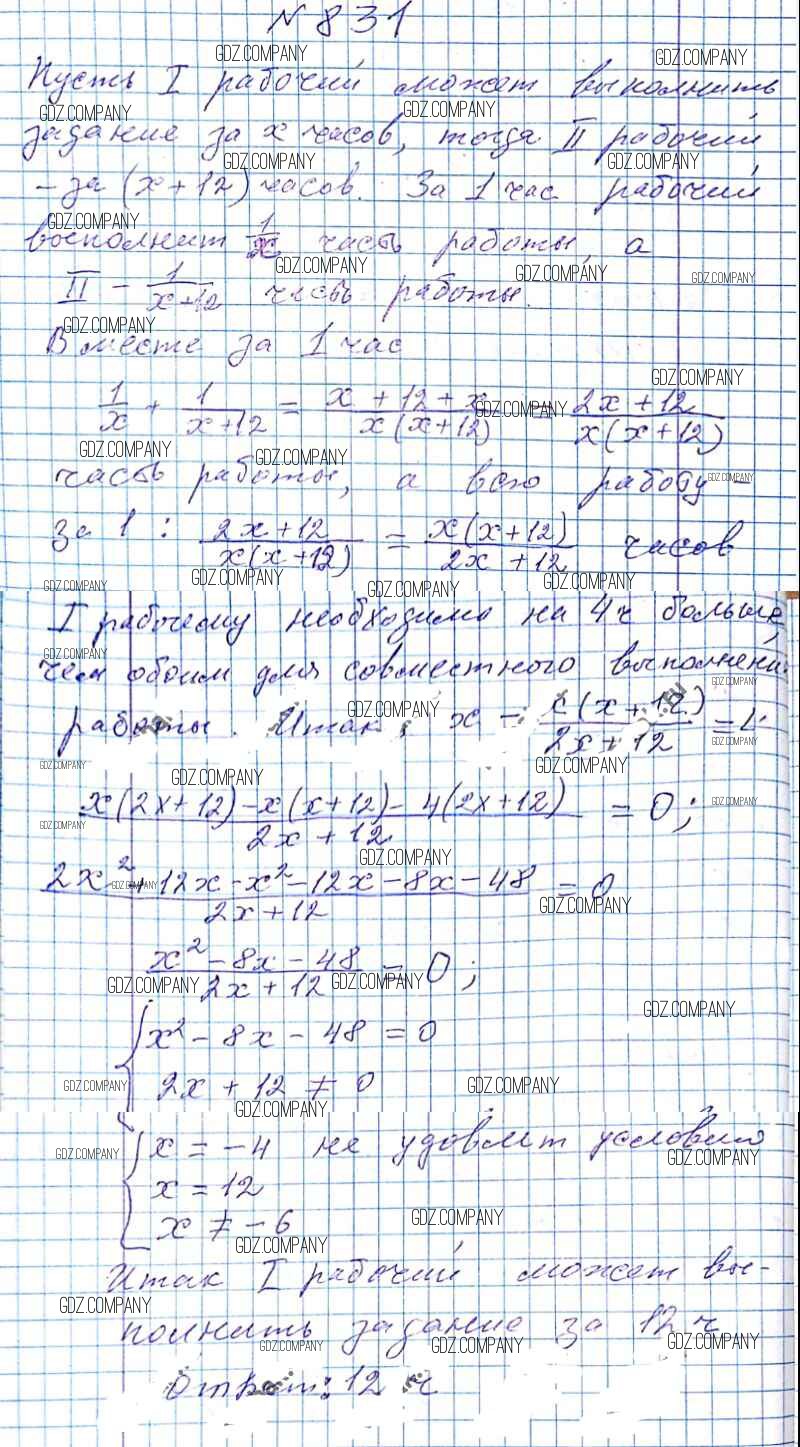 № 831
Пусть I рабочий может выполнить
задание за x часов, тогда II рабочий
– за (x+12) часов. За 1 час рабочий
восполнит 1/x часть работы, а
II – 1/(x+12) часть работы.
Вместе за 1 час
1/x + 1/(x+12) = (x + 12 + x)/(x(x+12)) = (2x + 12)/(x(x+12))
часть работы, а всю работу –
за 1 : (2x+12)/(x(x+12)) = (x(x+12))/(2x+12) часов
I рабочему необходимо на 4ч больше,
чем обоим для совместного выполнени
работы. Итак, x – (x(x+12))/(2x+12) = 4;
(x(2x+12) – x(x+12) – 4(2x+12))/(2x+12) = 0;
(2x² + 12x – x² – 12x – 8x – 48)/(2x+12) = 0
(x² – 8x – 48)/(2x+12) = 0;
{ x² – 8x – 48 = 0
2x + 12 ≠ 0
{ x = –4 не удовлет условию
x = 12
x ≠ –6
Итак I рабочий может вы-
полнить задание за 12 ч
Ответ: 12 ч
GDZ.COMPANY